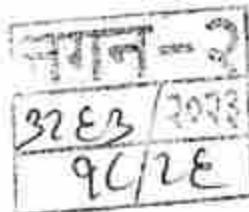 - २
३२६३ / २०२३
१८/२६